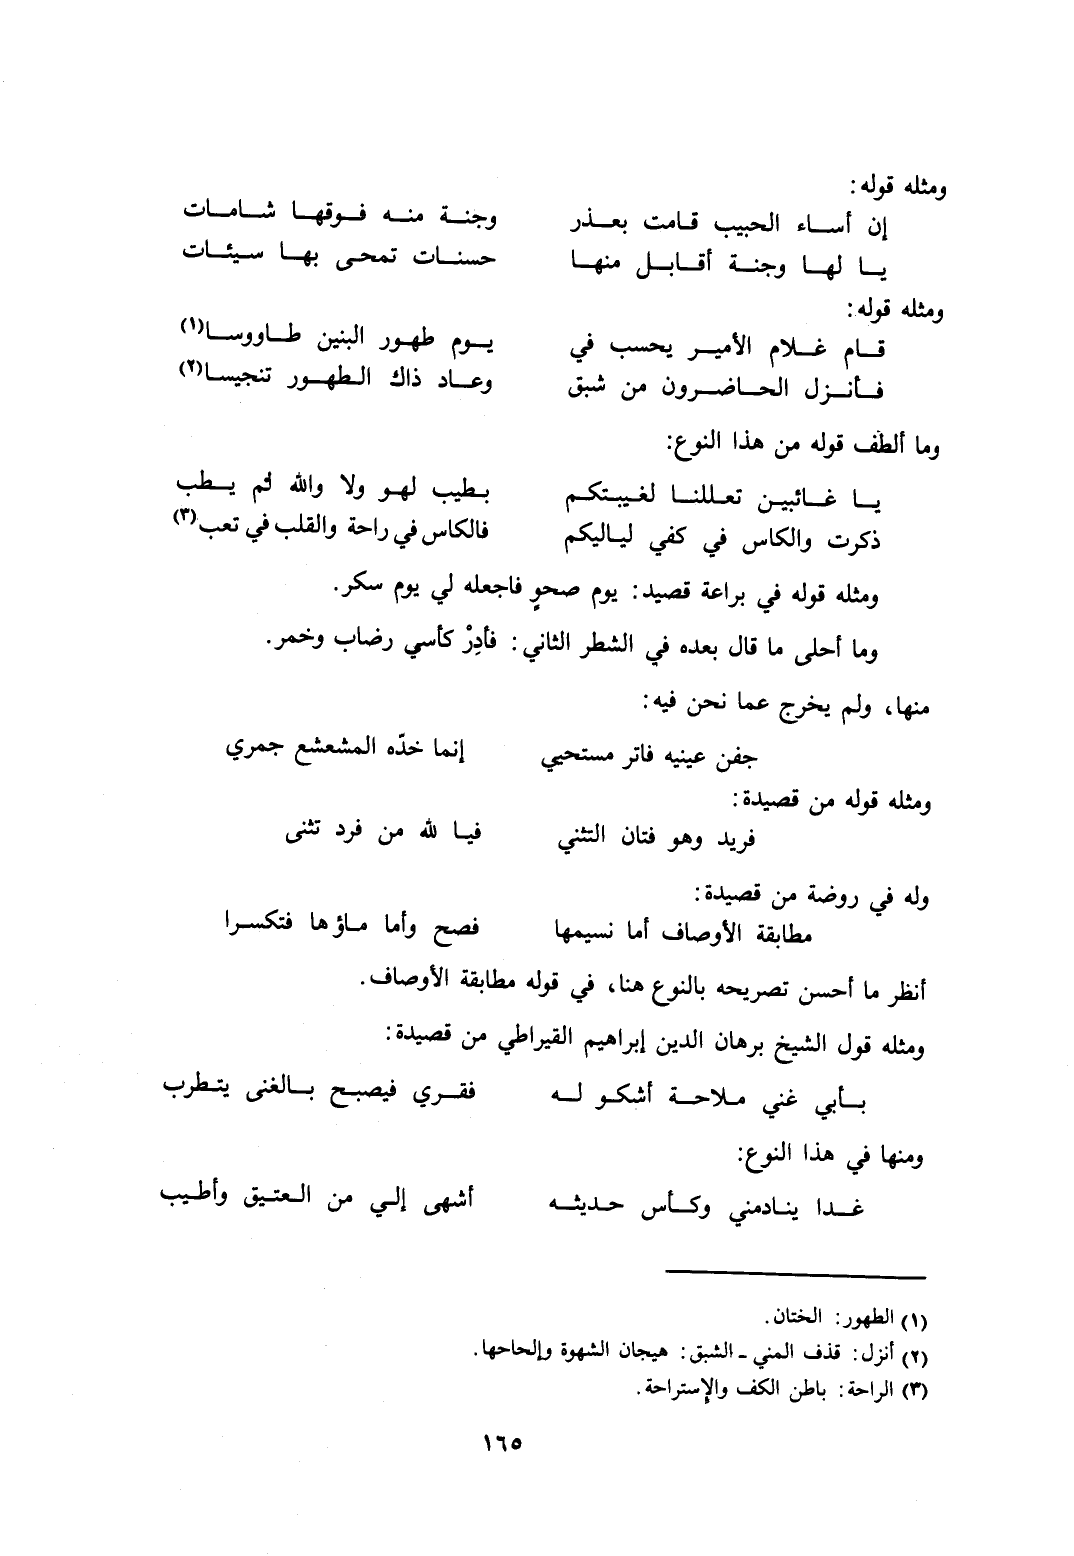 ومثله قوله:
إن أساء الحبيب قامت بعذر وجنة منه فوقها شامات
يا لها وجنة أقابل منها حسنات تمحى بها سيئات
ومثله قوله:
قام غلام الأمير يحسب في يوم طهور البنين طاووسا(١)
فأنزل الحاضرون من شبق وعاد ذاك الطهور تنجيسا(٢)
وما ألطف قوله من هذا النوع:
يا غائبين تعللنا لغيبتكم بطيب لهو ولا والله لم يطب
ذكرت والكاس في كفي لياليكم فالكاس في راحة والقلب في تعب(٣)
ومثله قوله في براعة قصيد: يوم صحوٍ فاجعله لي يوم سكر.
وما أحلى ما قال بعده في الشطر الثاني: فأدِرْ كأسي رضاب وخمر.
منها، ولم يخرج عما نحن فيه:
جفن عينيه فاتر مستحيي إنما خدّه المشعشع جمري
ومثله قوله من قصيدة:
فريد وهو فتان التثني فيا لله من فرد تثنى
وله في روضة من قصيدة:
مطابقة الأوصاف أما نسيمها فصح وأما ماؤها فتكسرا
أنظر ما أحسن تصريحه بالنوع هنا، في قوله مطابقة الأوصاف.
ومثله قول الشيخ برهان الدين إبراهيم القيراطي من قصيدة:
بأبي غني ملاحة أشكو له فقري فيصبح بالغنى يتطرب
ومنها في هذا النوع:
غدا ينادمني وكأس حديثه أشهى إلي من العتيق وأطيب
(١) الطهور: الختان.
(٢) أنزل: قذف المني ـ الشبق: هيجان الشهوة وإلحاحها.
(٣) الراحة: باطن الكف والإستراحة.
١٦٥